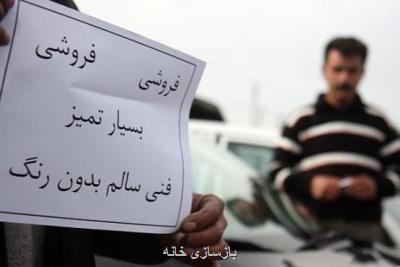 فروشی فروشی
بسیار تمیز
فنی سالم بدون رنگ
بازسازی خانه